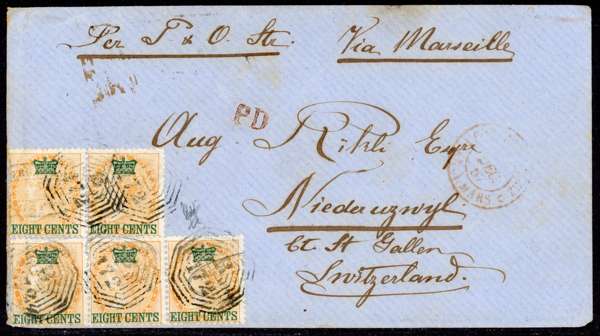 Per P & O. Str. Via Marseille
PD
Aug Rikli Esqre
Niederuzwyl
Ct. St Gallen
Switzerland.
EIGHT CENTS EIGHT CENTS
EIGHT CENTS EIGHT CENTS EIGHT CENTS